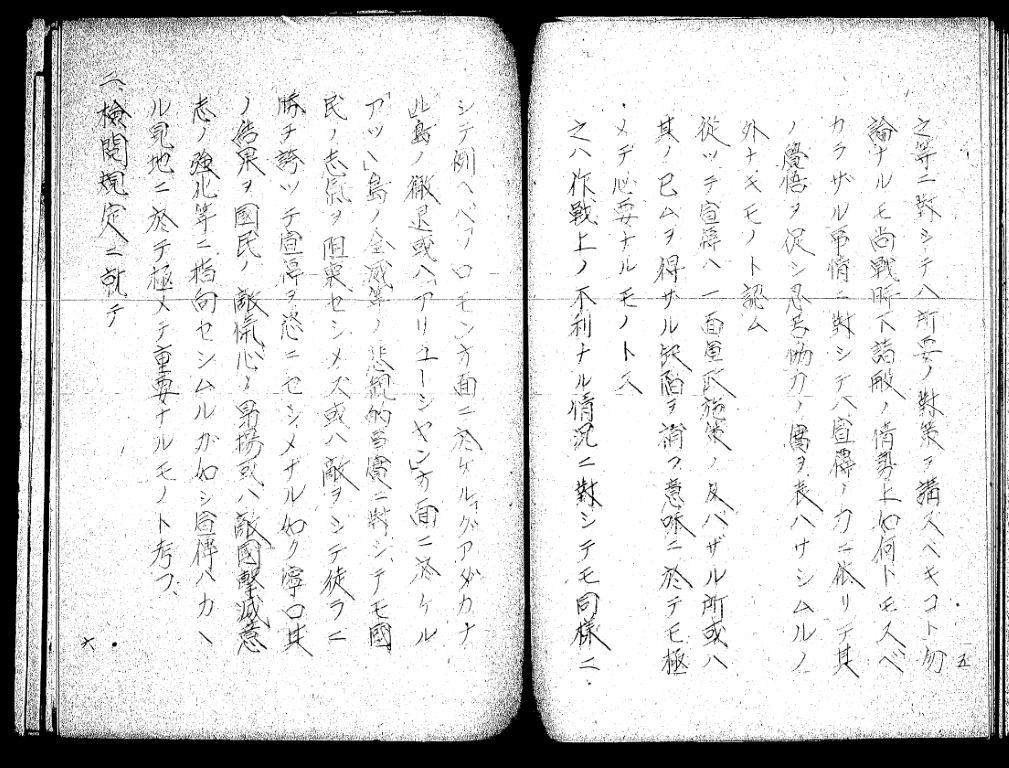 之等ニ對シテハ所要ノ對策ヲ講ズベキコト勿
論ナルモ尚戰時下諸般ノ情勢上如何トモスベ
カラザル事情ニ對シテハ宣傳ノ力ニ依リテ其
ノ覺悟ヲ促シ忍苦協力ノ實ヲ表ハサシムルノ
外ナキモノト認ム
從ツテ宣傳ハ一面軍政施策ノ及バザル所或ハ
其ノ已ムヲ得ザル缺陥ヲ補フ意味ニ於テモ極
メテ必要ナルモノトス
之ハ作戰上ノ不利ナル情況ニ對シテモ同様ニ
五
シテ例ヘバ「ソロモン」方面ニ於ケル「ガダルカナ
ル」島ノ撤退或ハ「アリユーシヤン」方面ニ於ケル
「アツツ」島ノ全滅等ノ悲觀的事實ニ對シテモ國
民ノ志氣ヲ阻喪セシメズ或ハ敵ヲシテ徒ラニ
勝ヲ誇ツテ宣傳ヲ恣ニセシメザル如ク寧ロ其
ノ結果ヲ國民ノ敵愾心ノ昂揚或ハ敵國擊滅意
志ノ強化等ニ指向セシムルガ如シ宣傳ハカヽ
ル見地ニ於テ極メテ重要ナルモノト考フ
二、檢閲規定ニ就テ
六